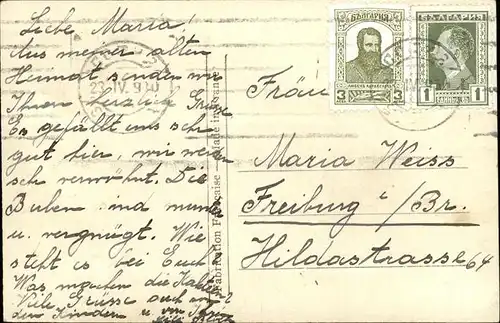 Liebe Maria!
Aus meiner alten
Heimat senden wir
Ihnen herzlich Grüsse
Es gefällt uns sehr
gut hier, wir werden
sehr verwöhnt. Die
Buben sind munter
u. vergnügt. Wie
steht es bei Euch
Was machen die
Viele Grüsse auch an
den Kindern u. von
Fabrication Française - Made in France
23.IV.9
БЪЛГАРИЯ
3 3
БЪЛГАРИЯ
1 1
Fräu
Maria Weiss
Freiburg i/Br.
Hildastrasse 64